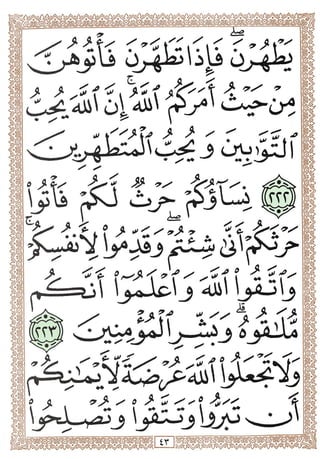 يَطْهُرْنَۖ فَإِذَا تَطَهَّرْنَ فَأْتُوهُنَّ
مِنْ حَيْثُ أَمَرَكُمُ ٱللَّهُۚ إِنَّ ٱللَّهَ يُحِبُّ
ٱلتَّوَّٰبِينَ وَيُحِبُّ ٱلْمُتَطَهِّرِينَ
٢٢٢ نِسَآؤُكُمْ حَرْثٌ لَّكُمْ فَأْتُوا۟
حَرْثَكُمْ أَنَّىٰ شِئْتُمْۖ وَقَدِّمُوا۟ لِأَنفُسِكُمْۚ
وَٱتَّقُوا۟ ٱللَّهَ وَٱعْلَمُوٓا۟ أَنَّكُم
مُّلَٰقُوهُۗ وَبَشِّرِ ٱلْمُؤْمِنِينَ ٢٢٣
وَلَا تَجْعَلُوا۟ ٱللَّهَ عُرْضَةً لِّأَيْمَٰنِكُمْ
أَن تَبَرُّوا۟ وَتَتَّقُوا۟ وَتُصْلِحُوا۟
٤٣